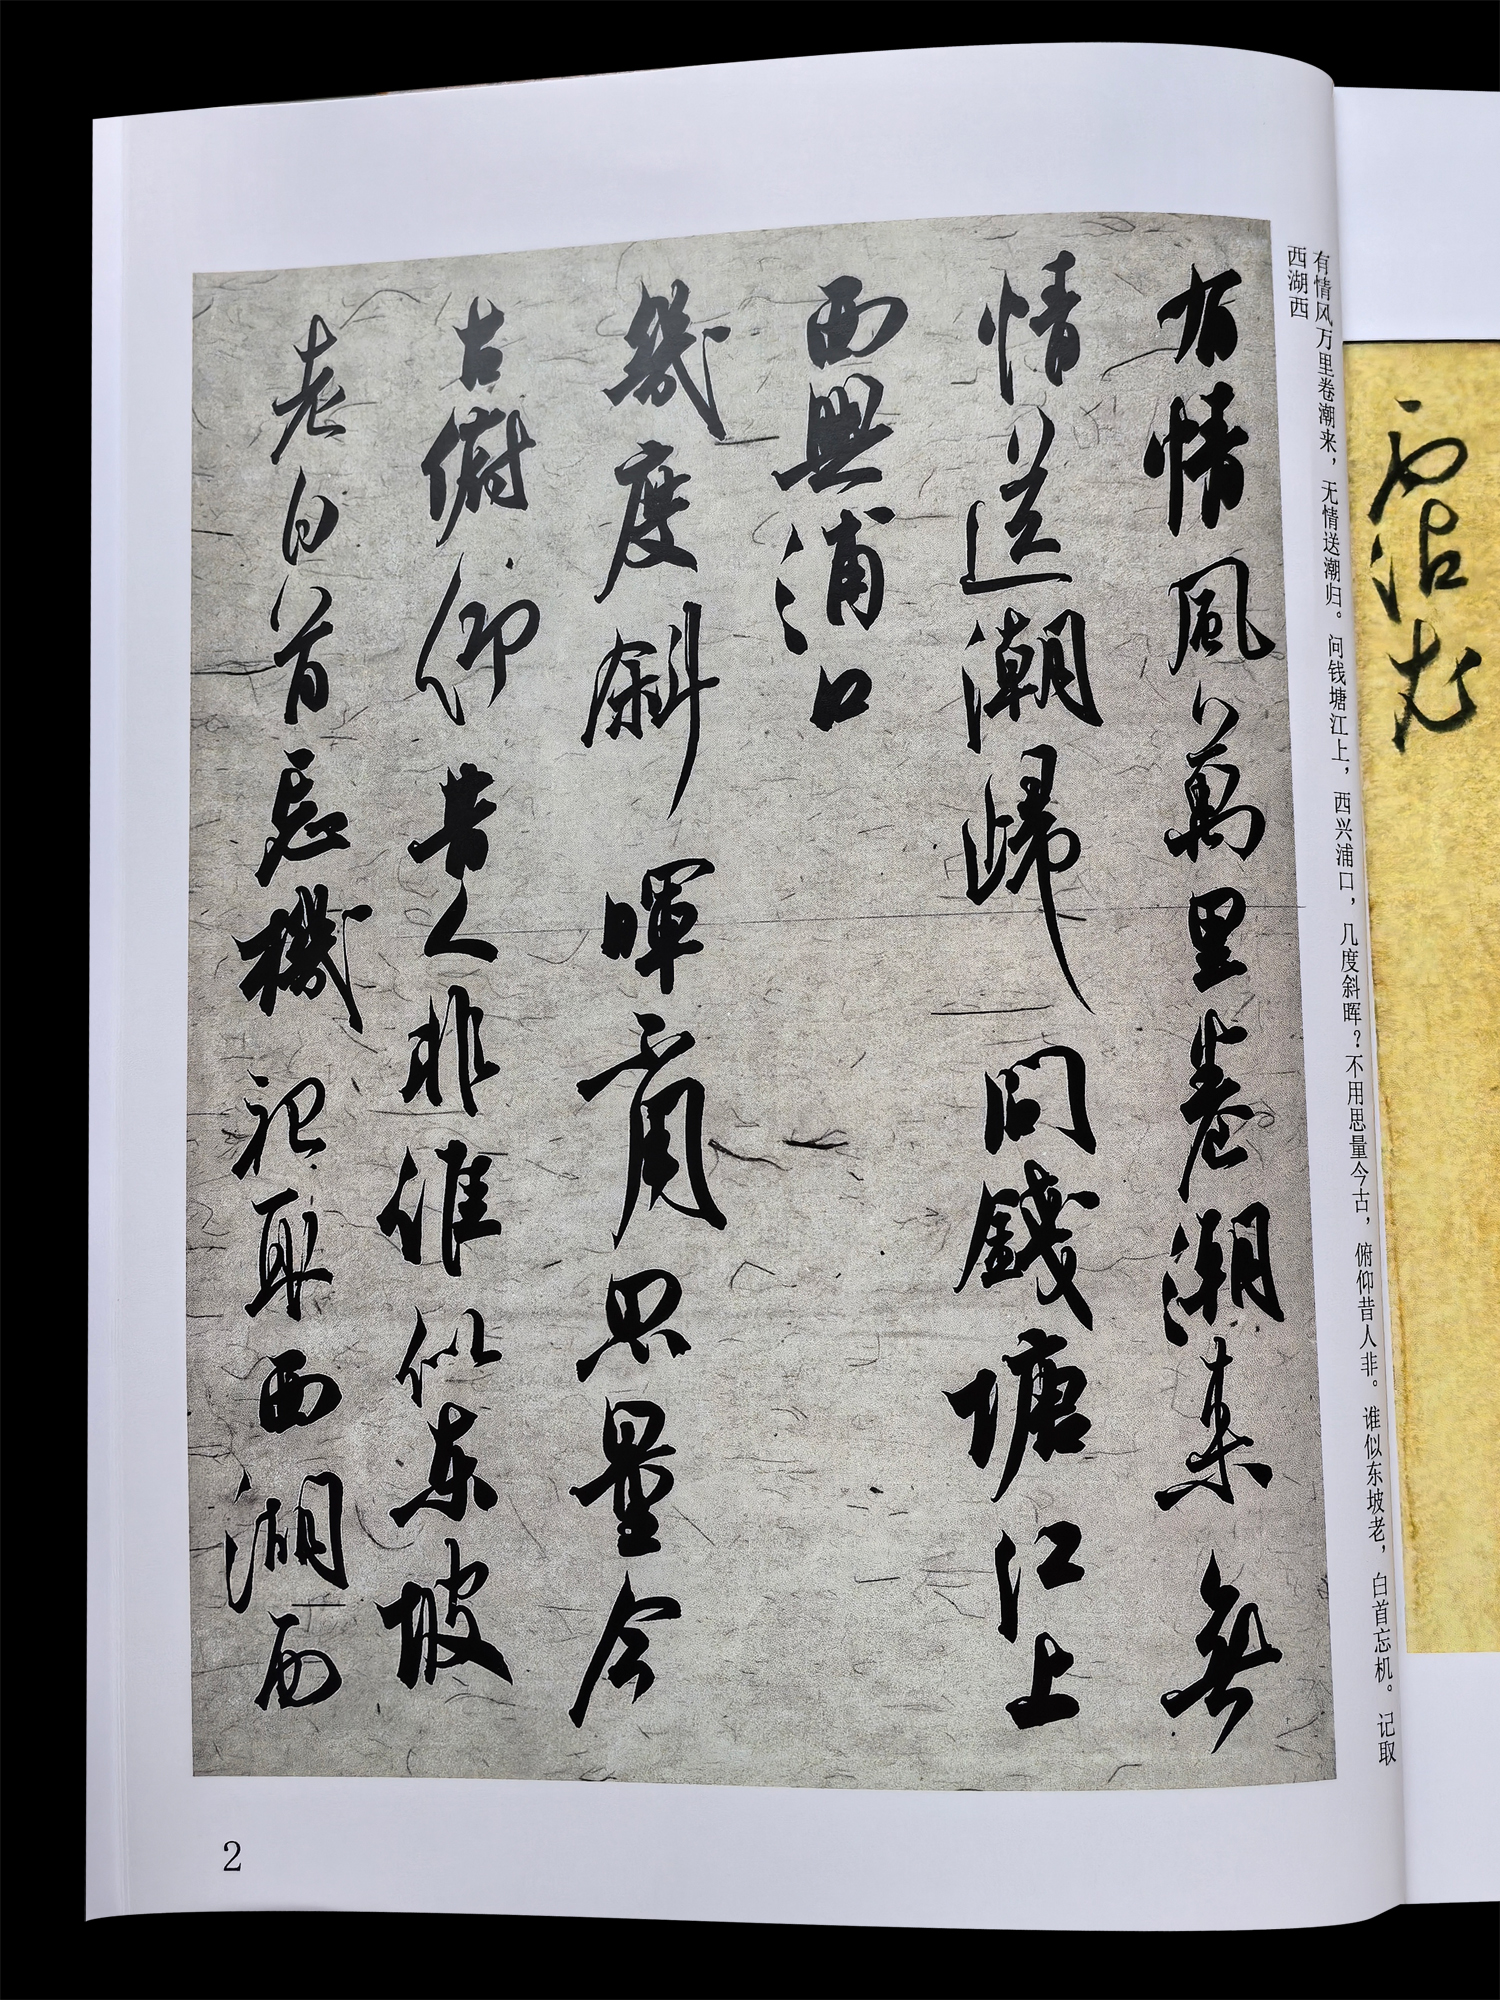 有情风万里卷潮来，无情送潮归。问钱塘江上，西兴浦口，几度斜晖？不用思量今古，俯仰昔人非。谁似东坡老，白首忘机。记取
西湖西
有情風萬里卷潮来無
情送潮歸問錢塘江上
西興浦口
幾度斜暉不用思量今
古俯仰昔人非谁似东坡
老白首忘機记取西湖西
2